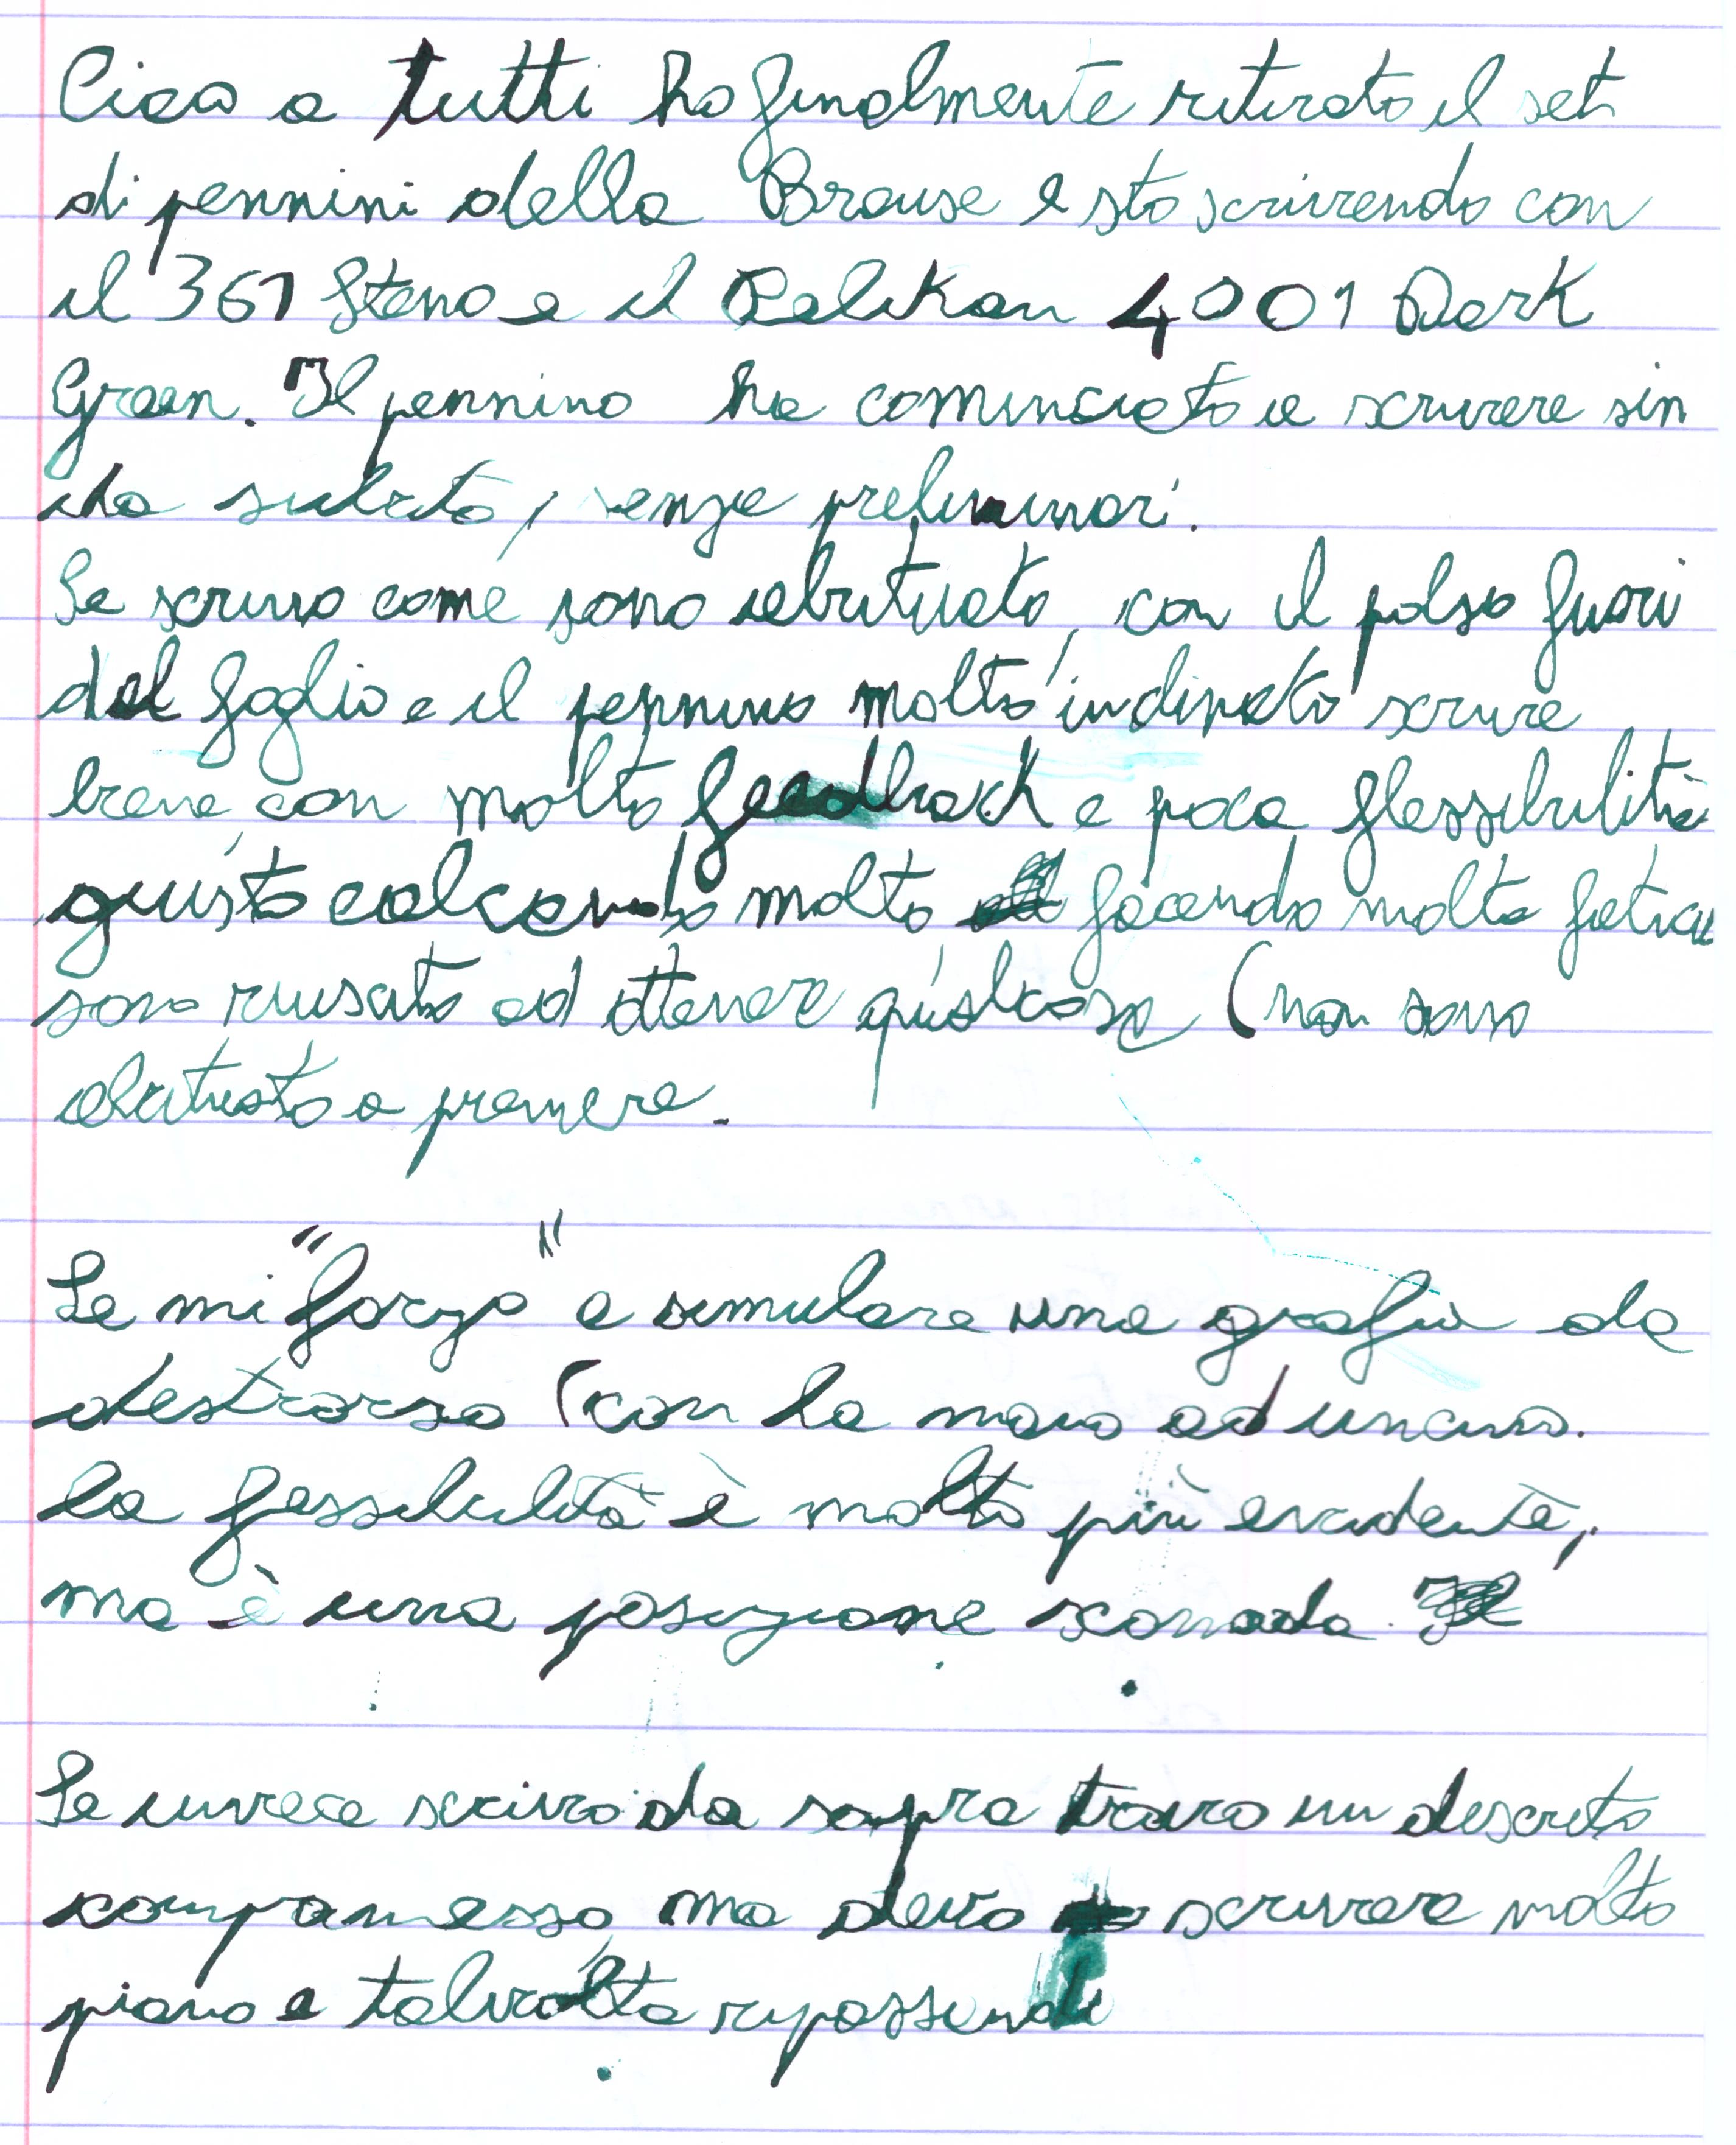 Ciao a tutti ho finalmente ritirato il set
di pennini della Brause e sto scrivendo con
il 361 Steno e il Pelikan 4001 Dark
Green. Il pennino ha cominciato a scrivere sin
da subito, senza preliminari.
Se scrivo come sono abituato, con il polso fuori
dal foglio e il pennino molto inclinato scrive
bene, con molto feedback e poca flessibilità
giusto calcando molto facendo molta fatica
sono riuscito ad ottenere qualcosa (non sono
abituato a premere.
Se mi "forzo" a simulare una grafia da
destrorso (con la mano ad uncino.
la fessibilità è molto più evidente,
ma è una posizione scomoda.
Se invece scrivo da sopra trovo un discreto
compromesso, ma devo scrivere molto
piano e talvolta ripassando